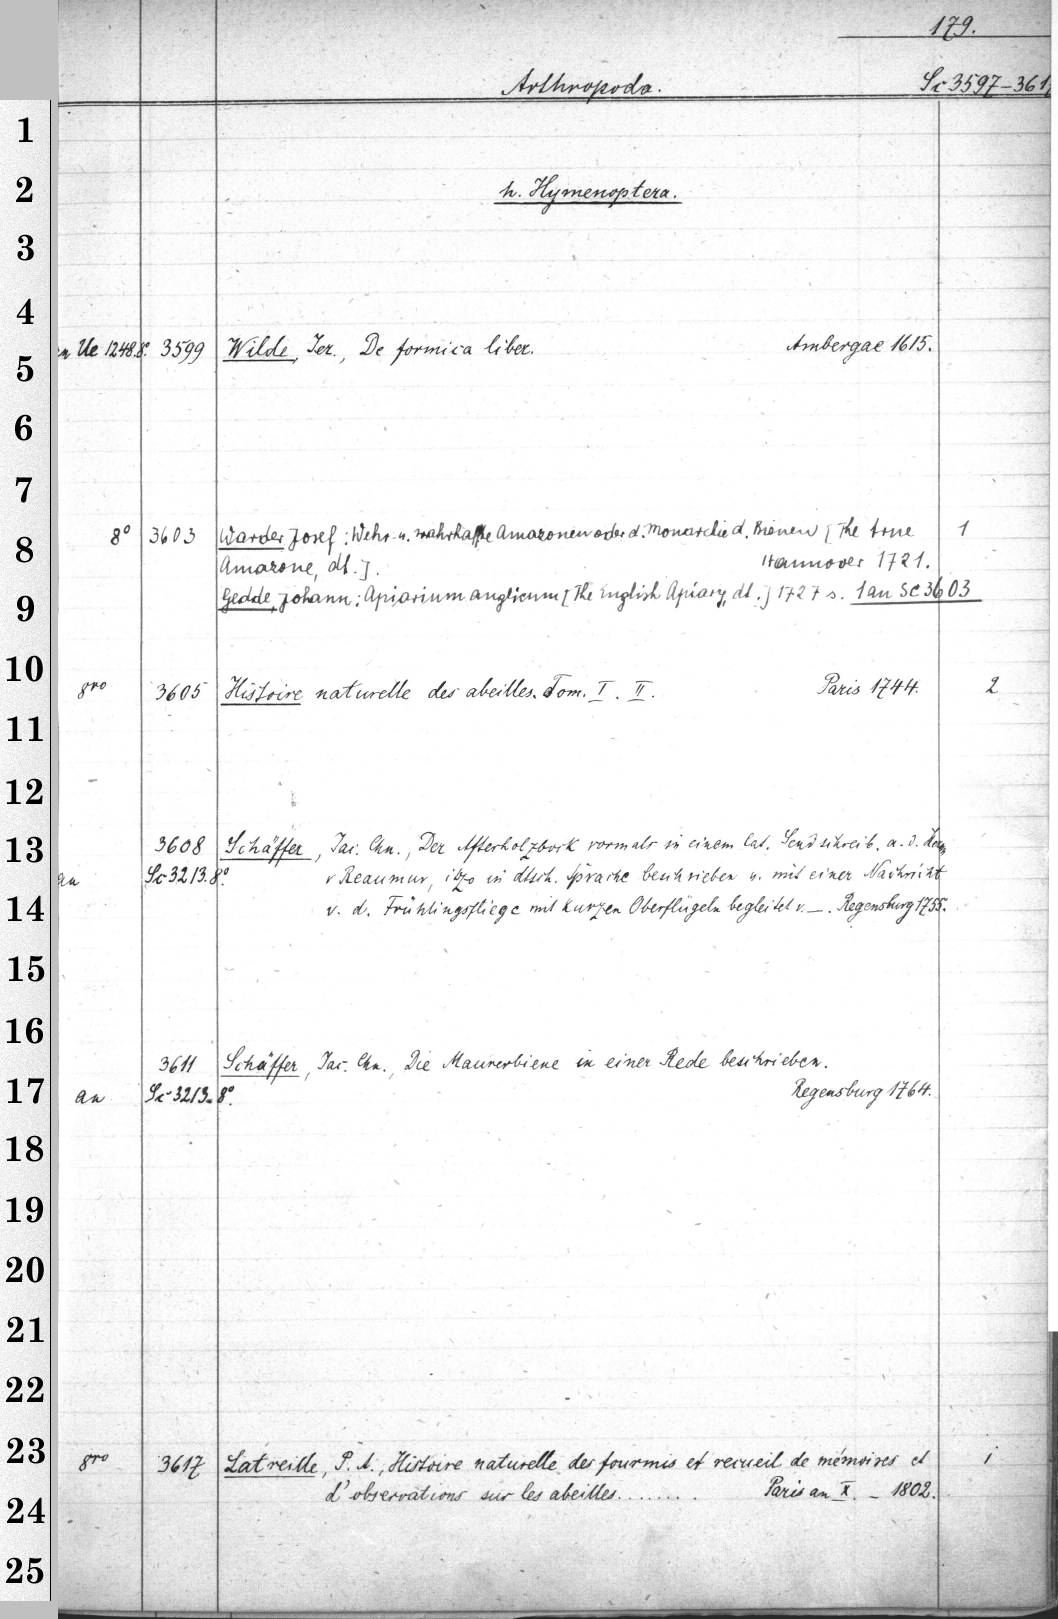 179.
Arthropoda. Sc 3597-361
1
2 h. Hymenoptera.
3
4
an Ue 1248.8°. 3599 Wilde, Jer., De formica liber. Ambergae 1615.
5
6
7
8° 3603 Warder Josef: Wehr- u. wahrhafte Amazonen oder d. Monarchie d. Bienen [The true 1
8 Amazone, dt.]. Hannover 1721.
9 Gedde, Johann: Apiarium anglicum [The English Apiary, dt.] 1727 s. 1 an Sc 3603
10
8vo 3605 Histoire naturelle des abeilles. Tom. I. II. Paris 1744. 2
11
12
13 3608 Schäffer, Jac. Chn., Der Afterholzbock vormals in einem lat. Sendschreib. a. d. Herrn
an Sc 3213.8°. v Reaumur, itzo in dtsch. Sprache beschrieben u. mit einer Nachricht
14 v. d. Frühlingsfliege mit kurzen Oberflügeln begleitet v. —. Regensburg 1755.
15
16
3611 Schäffer, Jac. Chn., Die Maurerbiene in einer Rede beschrieben.
17 an Sc 3213.8°. Regensburg 1764.
18
19
20
21
22
23 8vo 3617 Latreille, P. A., Histoire naturelle des fourmis et recueil de mémoires et 1
d'observations sur les abeilles....... Paris an X. – 1802.
24
25